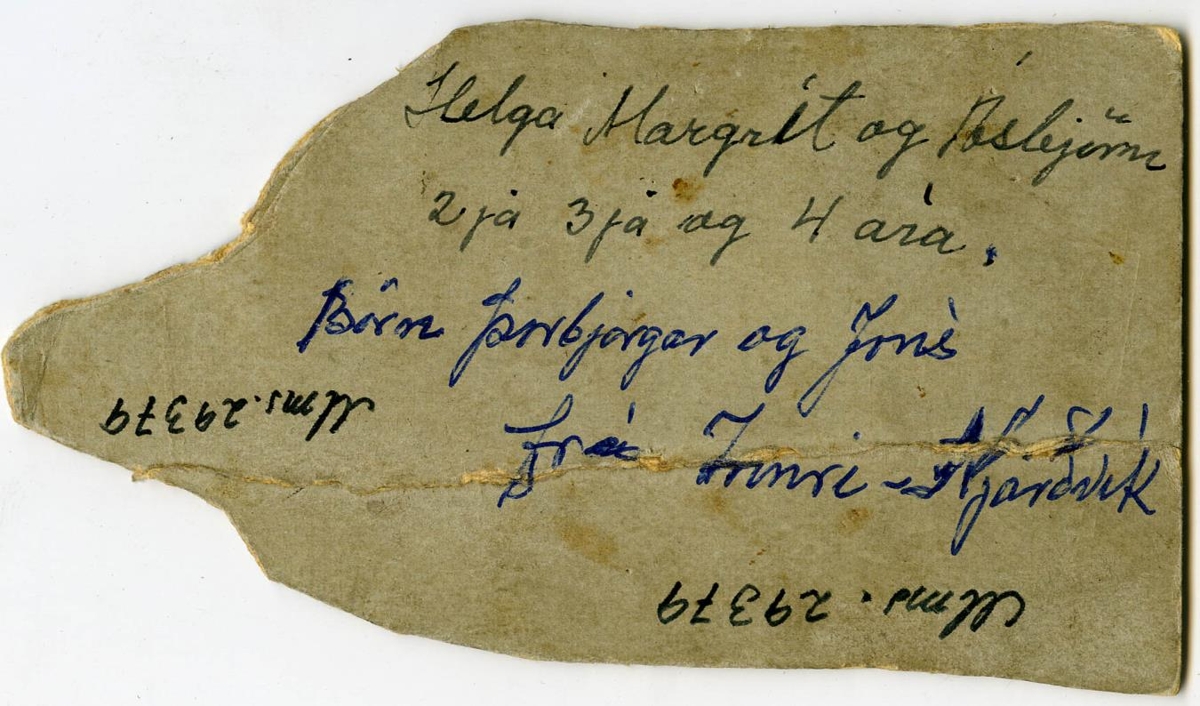 Helga Margrét og Ásbjörn
2ja 3ja og 4 ára.
Börn Þorbjörgar og Jóns
frá Innri-Njarðvík
Mms. 29379
Mms. 29379